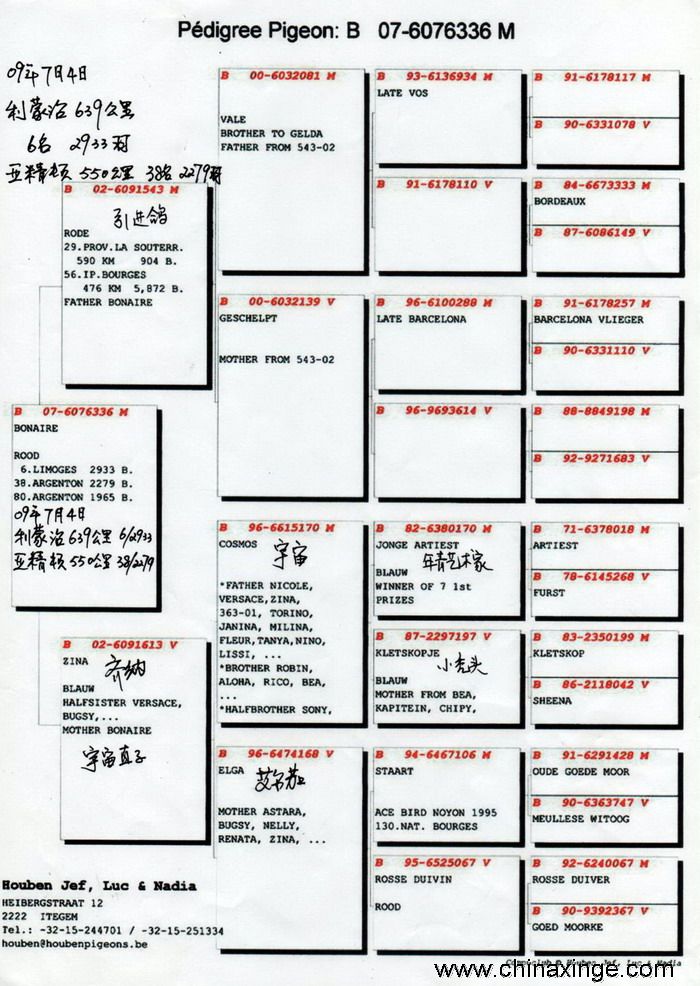 Pédigree Pigeon: B 07-6076336 M
09年7月4日
利蒙治 639公里
6名 2933羽
亚精顿 550公里 38名 2279羽
B 07-6076336 M
BONAIRE
ROOD
6.LIMOGES 2933 B.
38.ARGENTON 2279 B.
80.ARGENTON 1965 B.
09年7月4日
利蒙治 639公里 6/2933
亚精顿 550公里 38/2279
B 02-6091543 M
引进鸽
RODE
29.PROV.LA SOUTERR.
590 KM 904 B.
56.IP.BOURGES
476 KM 5,872 B.
FATHER BONAIRE
B 02-6091613 V
ZINA 齐纳
BLAUW
HALFSISTER VERSACE,
BUGSY,...
MOTHER BONAIRE
宇宙直子
B 00-6032081 M
VALE
BROTHER TO GELDA
FATHER FROM 543-02
B 00-6032139 V
GESCHELPT
MOTHER FROM 543-02
B 96-6615170 M
COSMOS
宇宙
*FATHER NICOLE,
VERSACE,ZINA,
363-01, TORINO,
JANINA, MILINA,
FLEUR,TANYA,NINO,
LISSI, ...
*BROTHER ROBIN,
ALOHA, RICO, BEA,
...
*HALFBROTHER SONY,
B 96-6474168 V
ELGA
MOTHER ASTARA,
BUGSY, NELLY,
RENATA, ZINA, ...
B 93-6136934 M
LATE VOS
B 91-6178110 V
B 96-6100288 M
LATE BARCELONA
B 96-9693614 V
B 82-6380170 M
JONGE ARTIEST
年青艺术家
BLAUW
WINNER OF 7 1st
PRIZES
B 87-2297197 V
KLETSKOPJE
小秃头
BLAUW
MOTHER FROM BEA,
KAPITEIN, CHIPY,
B 94-6467106 M
STAART
ACE BIRD NOYON 1995
130.NAT. BOURGES
B 95-6525067 V
ROSSE DUIVIN
ROOD
B 91-6178117 M
B 90-6331078 V
B 84-6673333 M
BORDEAUX
B 87-6086149 V
B 91-6178257 M
BARCELONA VLIEGER
B 90-6331110 V
B 88-8849198 M
B 92-9271683 V
B 71-6378018 M
ARTIEST
B 78-6145268 V
FURST
B 83-2350199 M
KLETSKOP
B 86-2118042 V
SHEENA
B 91-6291428 M
OUDE GOEDE MOOR
B 90-6363747 V
MEULLESE WITOOG
B 92-6240067 M
ROSSE DUIVER
B 90-9392367 V
GOED MOORKE
Houben Jef, Luc & Nadia
HEIBERGSTRAAT 12
2222 ITEGEM
Tel.: -32-15-244701 / -32-15-251334
houben@houbenpigeons.be
Houben Jef, Luc & Nadia
www.chinaxinge.com